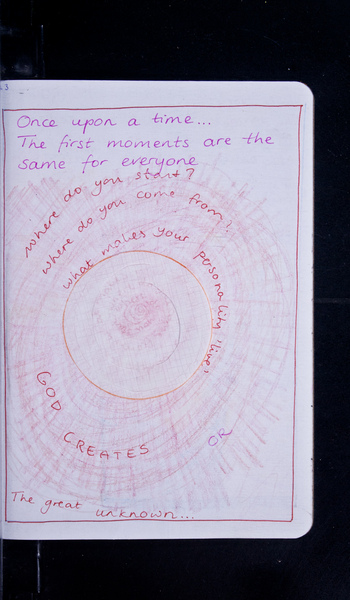 Once upon a time...
The first moments are the
same for everyone
where do you start?
where do you come from?
what makes your personality 'live'
GOD
CREATES
OR
The great unknown...